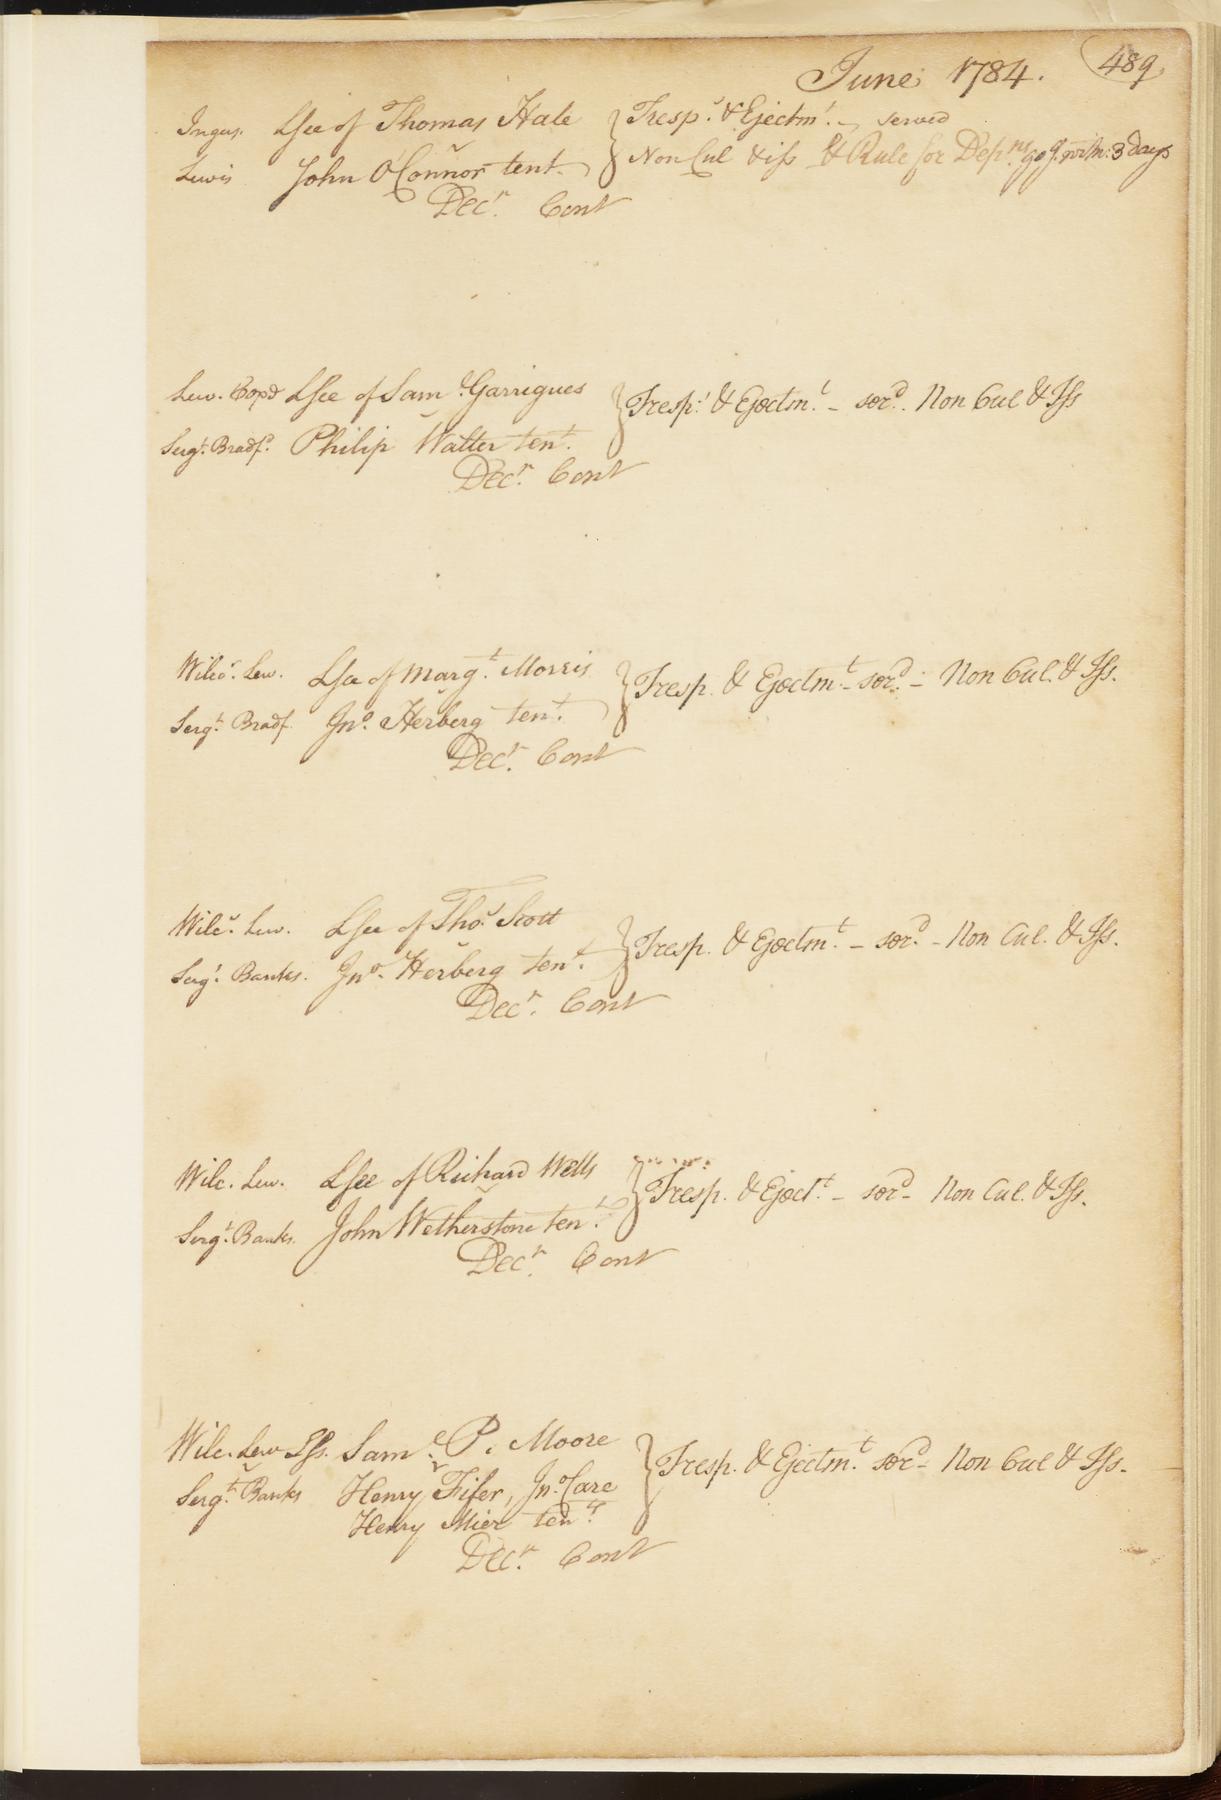 June 1784. 489
Ingers. Lsee of Thomas Hale Tresp.s & Ejectm.t – served
v
Lewis John O'Connor tent. Non Cul & iss & Rule for Dep.ns 3 days
Decr. Cont
Lew. Lsee of Sam.l Garrigues Tresp.s & Ejectm.t – ser.d. Non Cul & Iss
v
Serg.t Bradf.d Philip Walter ten.t.
Dec.r Cont
Wilc.s Lew. Lsee of Marg.t Morris Tresp. & Ejectm.t – ser.d – Non Cul. & Iss.
v
Serg.t Bradf. Jn.o Herberg ten.t.
Dec.r Cont
Wilc.s Lew. Lsee of Tho.s Scott Tresp. & Ejectm.t – ser.d – Non Cul. & Iss.
v
Serg.t Banks. Jn.o Herberg ten.t.
Dec.r Cont
Wilc. Lew. Lsee of Richard Wells Tresp. & Eject.t – ser.d – Non Cul. & Iss.
v
Serg.t Banks. John Wetherstone ten.t
Dec.r Cont
Wilc. Lew Lss. Sam.l P. Moore Tresp. & Ejectm.t ser.d – Non Cul & Iss.
v
Serg.t Banks Henry Fifer, Jn.o Care
Henry Mier ten.ts
Dec.r Cont